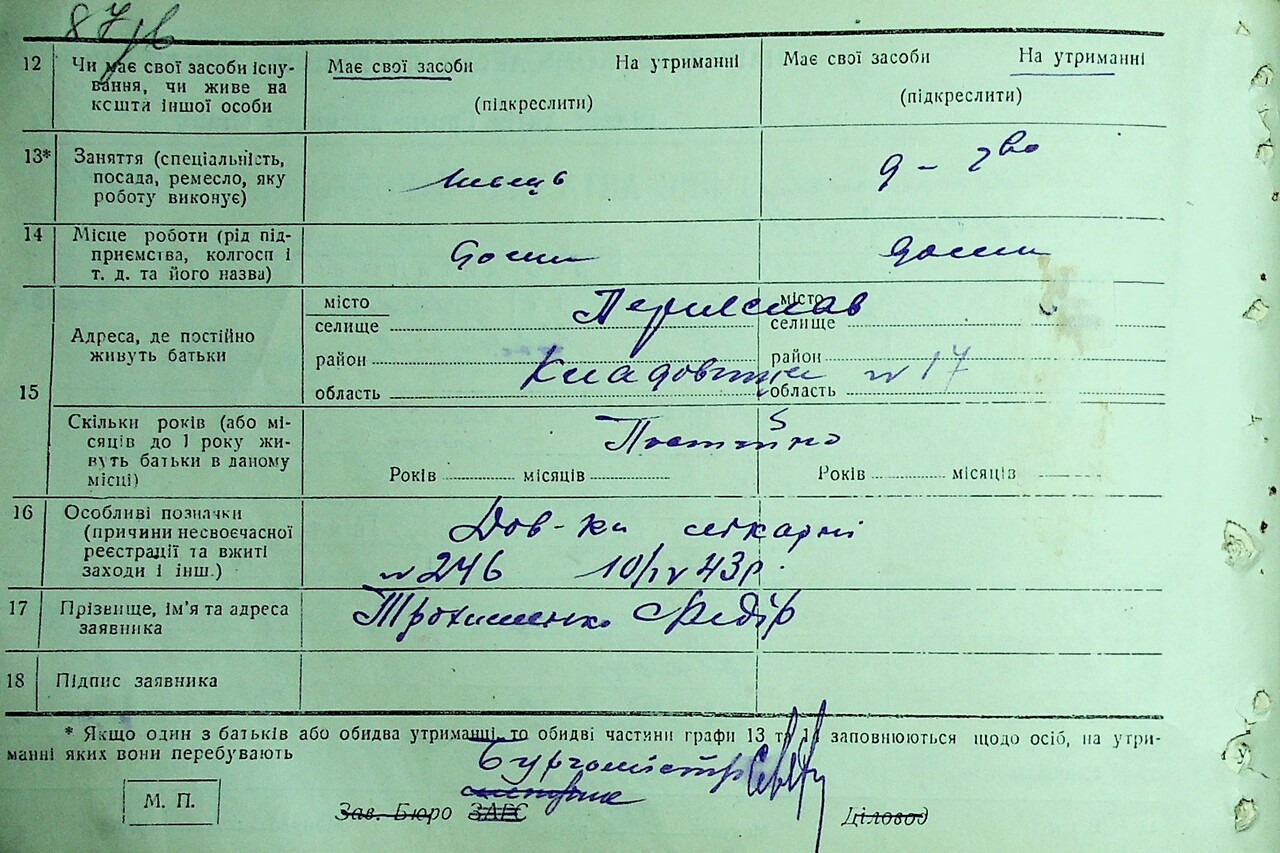 87
12 Чи має свої засоби існу-
вання, чи живе на
кошти іншої особи
Має свої засоби На утриманні
(підкреслити)
Має свої засоби На утриманні
(підкреслити)
13* Заняття (спеціальність,
посада, ремесло, яку
роботу виконує)
швець
д-гво
14 Місце роботи (рід під-
приємства, колгосп і
т. д. та його назва)
дома
дома
15 Адреса, де постійно
живуть батьки
місто
селище
район
область
місто
селище
район
область
Переяслав
№ 17
Скільки років (або мі-
сяців до 1 року жи-
вуть батьки в даному
місці)
Постійно
Років місяців
Років місяців
16 Особливі позначки
(причини несвоєчасної
реєстрації та вжиті
заходи і інш.)
Дов-ка лікарні
№ 246 10/IV 43р.
17 Прізвище, ім’я та адреса
заявника
Трохименко Федір
18 Підпис заявника
* Якщо один з батьків або обидва утриманні, то обидві частини графи 13 та 14 заповнюються щодо осіб, на утри-
манні яких вони перебувають
Бургомістр
М. П.
Зав. Бюро ЗАГС
Діловод